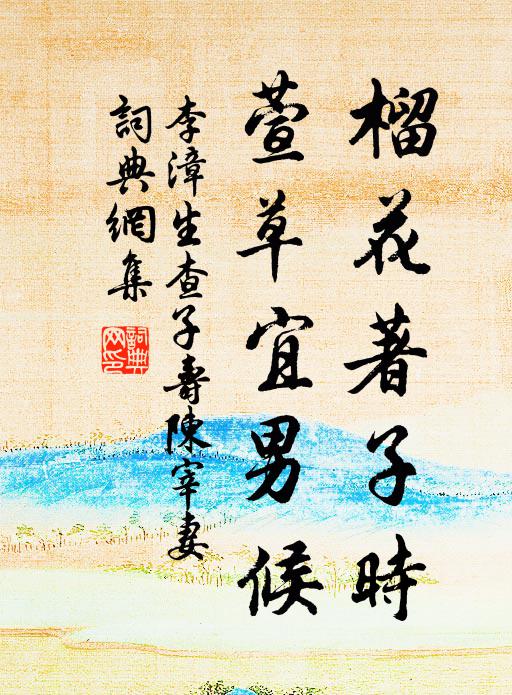 榴花著子時
萱草宜男候
李漳生查子壽陳宰妻
詞典網集
詞典
网印